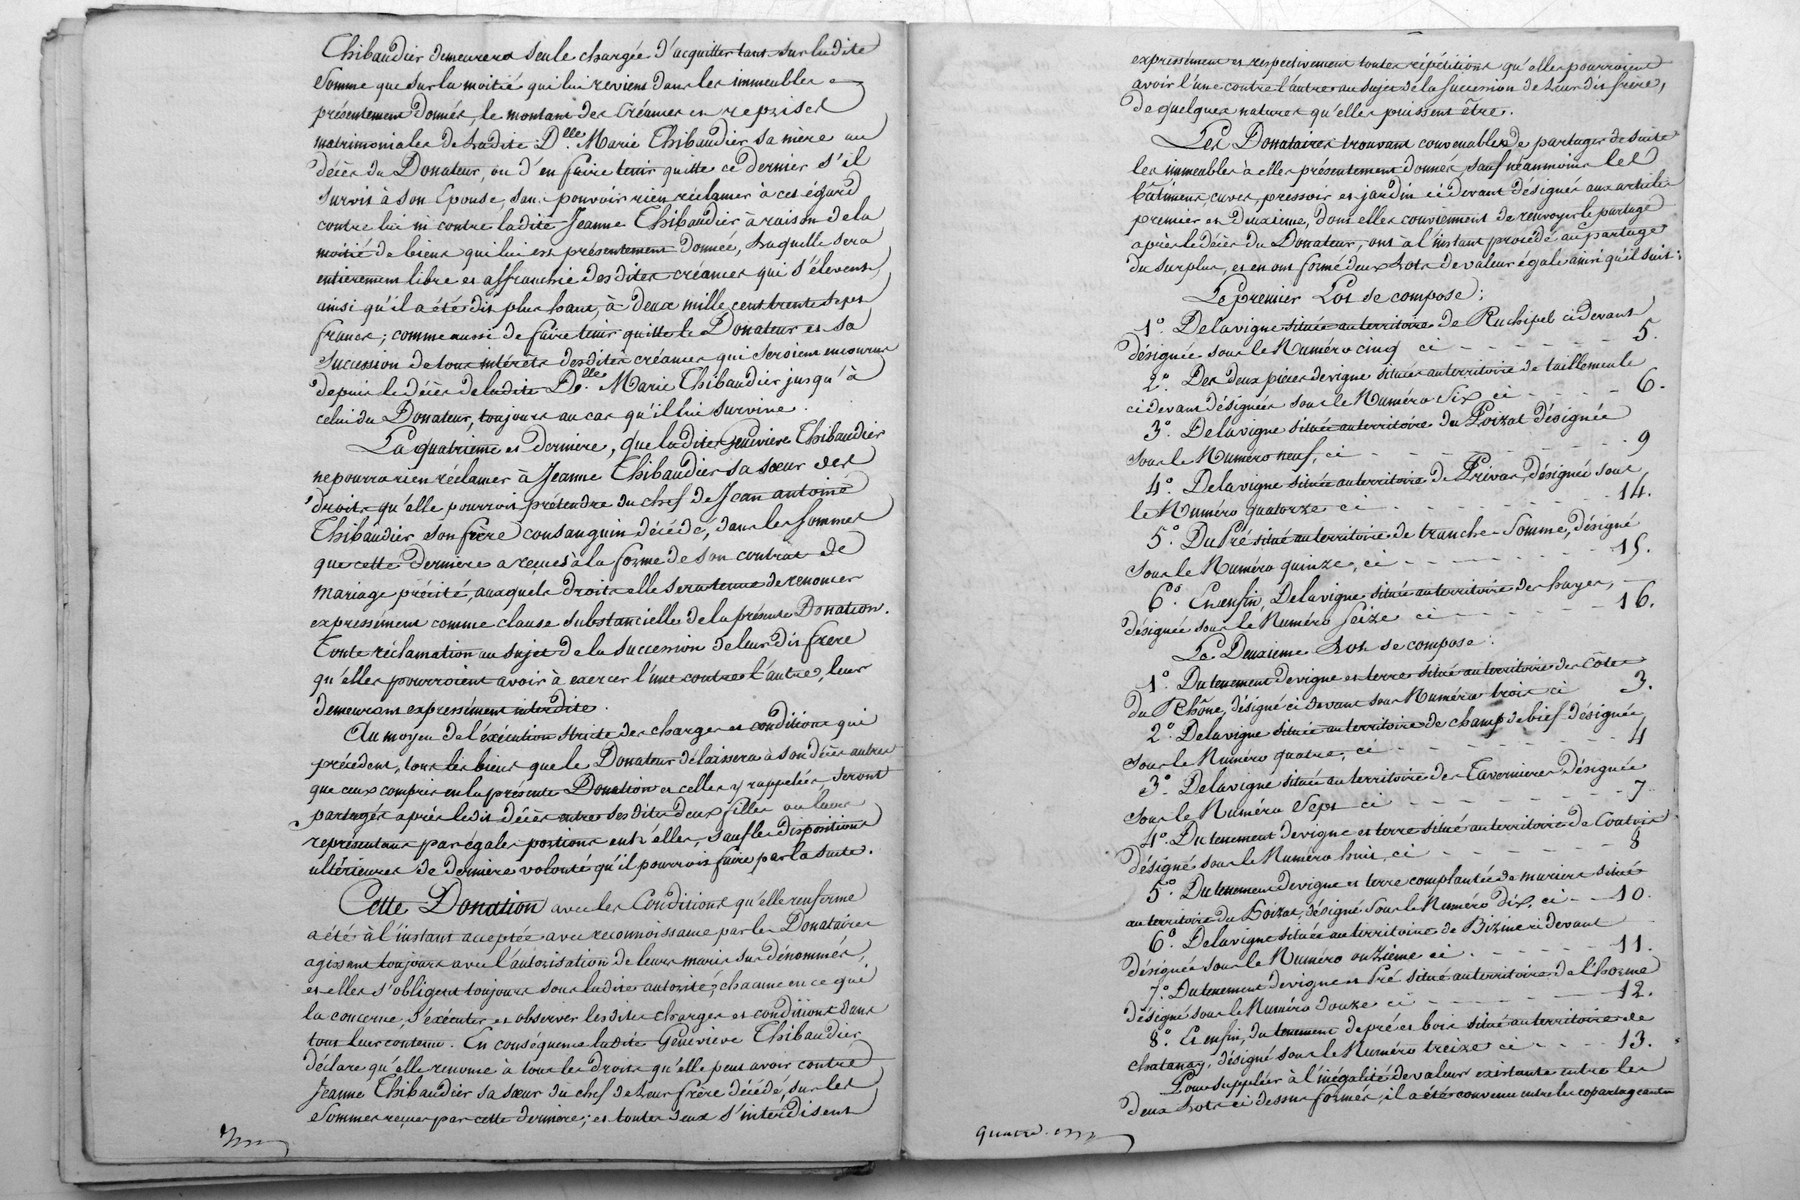 Thibaudier demeurera seule chargée d'acquitter tant sur ladite
Somme que sur la moitié qui lui revient dans les immeubles
présentement donnés, le montant des créances et reprises
matrimoniales de ladite D.lle Marie Thibaudier sa mère au
décès du Donateur, ou d'en faire tenir quitte ce dernier s'il
survit à son Epouse, sans pouvoir rien réclamer à cet égard
contre lui ni contre ladite Jeanne Thibaudier à raison de la
moitié de biens qui lui est présentement donnée, laquelle sera
entièrement libre et affranchie desdites créances qui s'élevent,
ainsi qu'il a été dit plus haut, à deux mille cent trente sept
francs; comme aussi de faire tenir quitte le Donateur et sa
succession de tous intérêts desdites créances qui seroient encourus
depuis le décès de ladite D.lle Marie Thibaudier jusqu'à
celui du Donateur, toujours au cas qu'il lui survive.
La quatrième et dernière, que ladite Geneviève Thibaudier
ne pourra rien réclamer à Jeanne Thibaudier sa sœur des
droits qu'elle pourroit prétendre du chef de Jean antoine
Thibaudier son frère consanguin décédé, dans les sommes
que cette dernière a reçues à la forme de son contrat de
mariage précité, auxquels droits elle sera tenue de renoncer
expressément comme clause substancielle de la présente Donation.
Toute réclamation au sujet de la succession de leur dit frère
qu'elles pourroient avoir à exercer l'une contre l'autre, leur
demeurant expressément interdite.
Au moyen de l'exécution stricte des charges et conditions qui
précédent, tous les biens que le Donateur délaissera à son décès autres
que ceux compris en la présente Donation et celles y rappelées, seront
partagés après ledit décès entre ses dites deux filles ou leurs
représentans par égales portions entr'elles, sauf les dispositions
ultérieures de dernière volonté qu'il pourroit faire par la suite.
Cette Donation avec les Conditions qu'elle renferme
a été à l'instant acceptée avec reconnoissance par les Donataires
agissant toujours avec l'autorisation de leurs maris sus dénommés,
et elles s'obligent toujours sous ladite autorité, chacune en ce qui
la concerne, d'exécuter et observer lesdites charges et conditions dans
tout leur contenu. En conséquence ladite Geneviève Thibaudier
déclare qu'elle renonce à tous les droits qu'elle peut avoir contre
Jeanne Thibaudier sa sœur du chef de leur frère décédé, sur les
sommes reçues par cette dernière; et toutes deux s'interdisent
expressément et respectivement toutes répétitions qu'elles pourroient
avoir l'une contre l'autre au sujet de la succession de leur dit frère,
de quelques natures qu'elles puissent être.
Les Donataires trouvant convenable de partager de suite
les immeubles à elles présentement donnés, sauf néanmoins les
bâtimens, cuves, pressoir et jardin ci devant désignés aux articles
premier et deuxième, dont elles conviennent de renvoyer le partage
après le décès du Donateur, ont à l'instant procédé au partage
du surplus, et en ont formé deux Lots de valeur égale ainsi qu'il suit:
Le premier Lot se compose;
1.° De la vigne située au territoire de Ruchipel ci devant
désignée sous le Numéro cinq ci - - - - - - 5.
2.° Des deux pièces de vigne situées au territoire de taillemule
ci devant désignées sous le Numéro Six ci - - - - 6.
3.° De la vigne située au territoire du Poizat désignée
sous le Numéro neuf, ci - - - - - - 9
4.° De la vigne située au territoire de Privas, désignée sous
le Numéro quatorze ci - - - - - - 14.
5.° Du Pré situé au territoire de tranche-Somme, désigné
sous le Numéro quinze, ci - - - - - - 15.
6.° Et enfin, De la vigne située au territoire des hayes,
désignée sous le Numéro Seize ci - - - - - 16.
Le Deuxieme Lot se compose.
1.° Du tenement de vigne et terre situé au territoire des Côtes
du Rhône, désigné ci devant sous Numéro trois ci 3.
2.° De la vigne située au territoire de champ de bief désignée
sous le Numéro quatre, ci - - - - - - 4
3.° De la vigne située au territoire des Tavernieres désignée
sous le Numéro Sept ci - - - - - - 7.
4.° Du tenement de vigne et terre situé au territoire de Coatvis
désigné sous le Numéro huit, ci - - - - - - 8
5.° Du tenement de vigne et terre complantée de muriers situé
au territoire du Poizat, désigné sous le Numéro dix, ci - - 10.
6.° De la vigne située au territoire de Bizine ci devant
désignée sous le Numéro onzième ci - - - - - 11.
7.° Du tenement de vigne et Pré situé au territoire de l'horme
désigné sous le Numéro douze ci - - - - - 12.
8.° Et enfin, du tenement de pré et bois situé au territoire de
chatanay, désigné sous le Numéro treize ci - - - - 13.
Pour suppléer à l'inégalité de valeur existante entre les
deux Lots ci dessus formés, il a été convenu entre les copartageantes